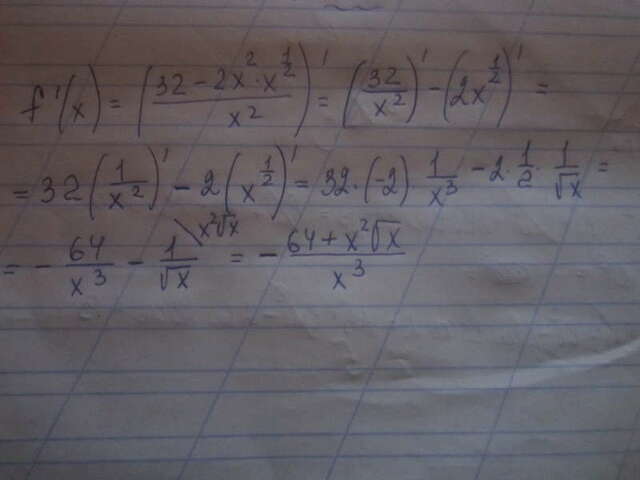 f'(x) = ((32 - 2x² · x^(1/2))/x²)' = (32/x²)' - (2x^(1/2))' =
= 32(1/x²)' - 2(x^(1/2))' = 32 · (-2) · 1/x³ - 2 · 1/2 · 1/√x =
= - 64/x³ - 1/√x \x²√x = - (64 + x²√x)/x³